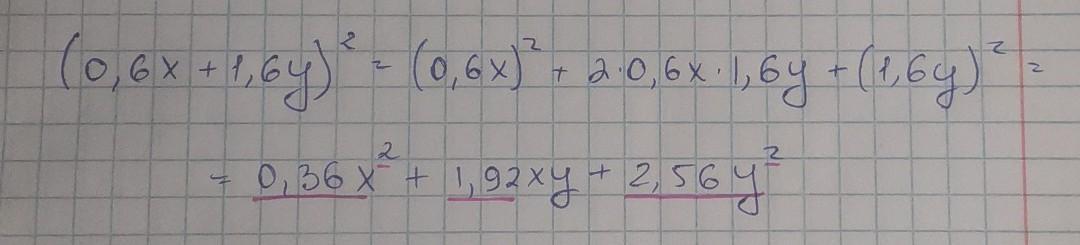 (0,6x + 1,6y)² = (0,6x)² + 2·0,6x·1,6y + (1,6y)² =
= 0,36x² + 1,92xy + 2,56y²